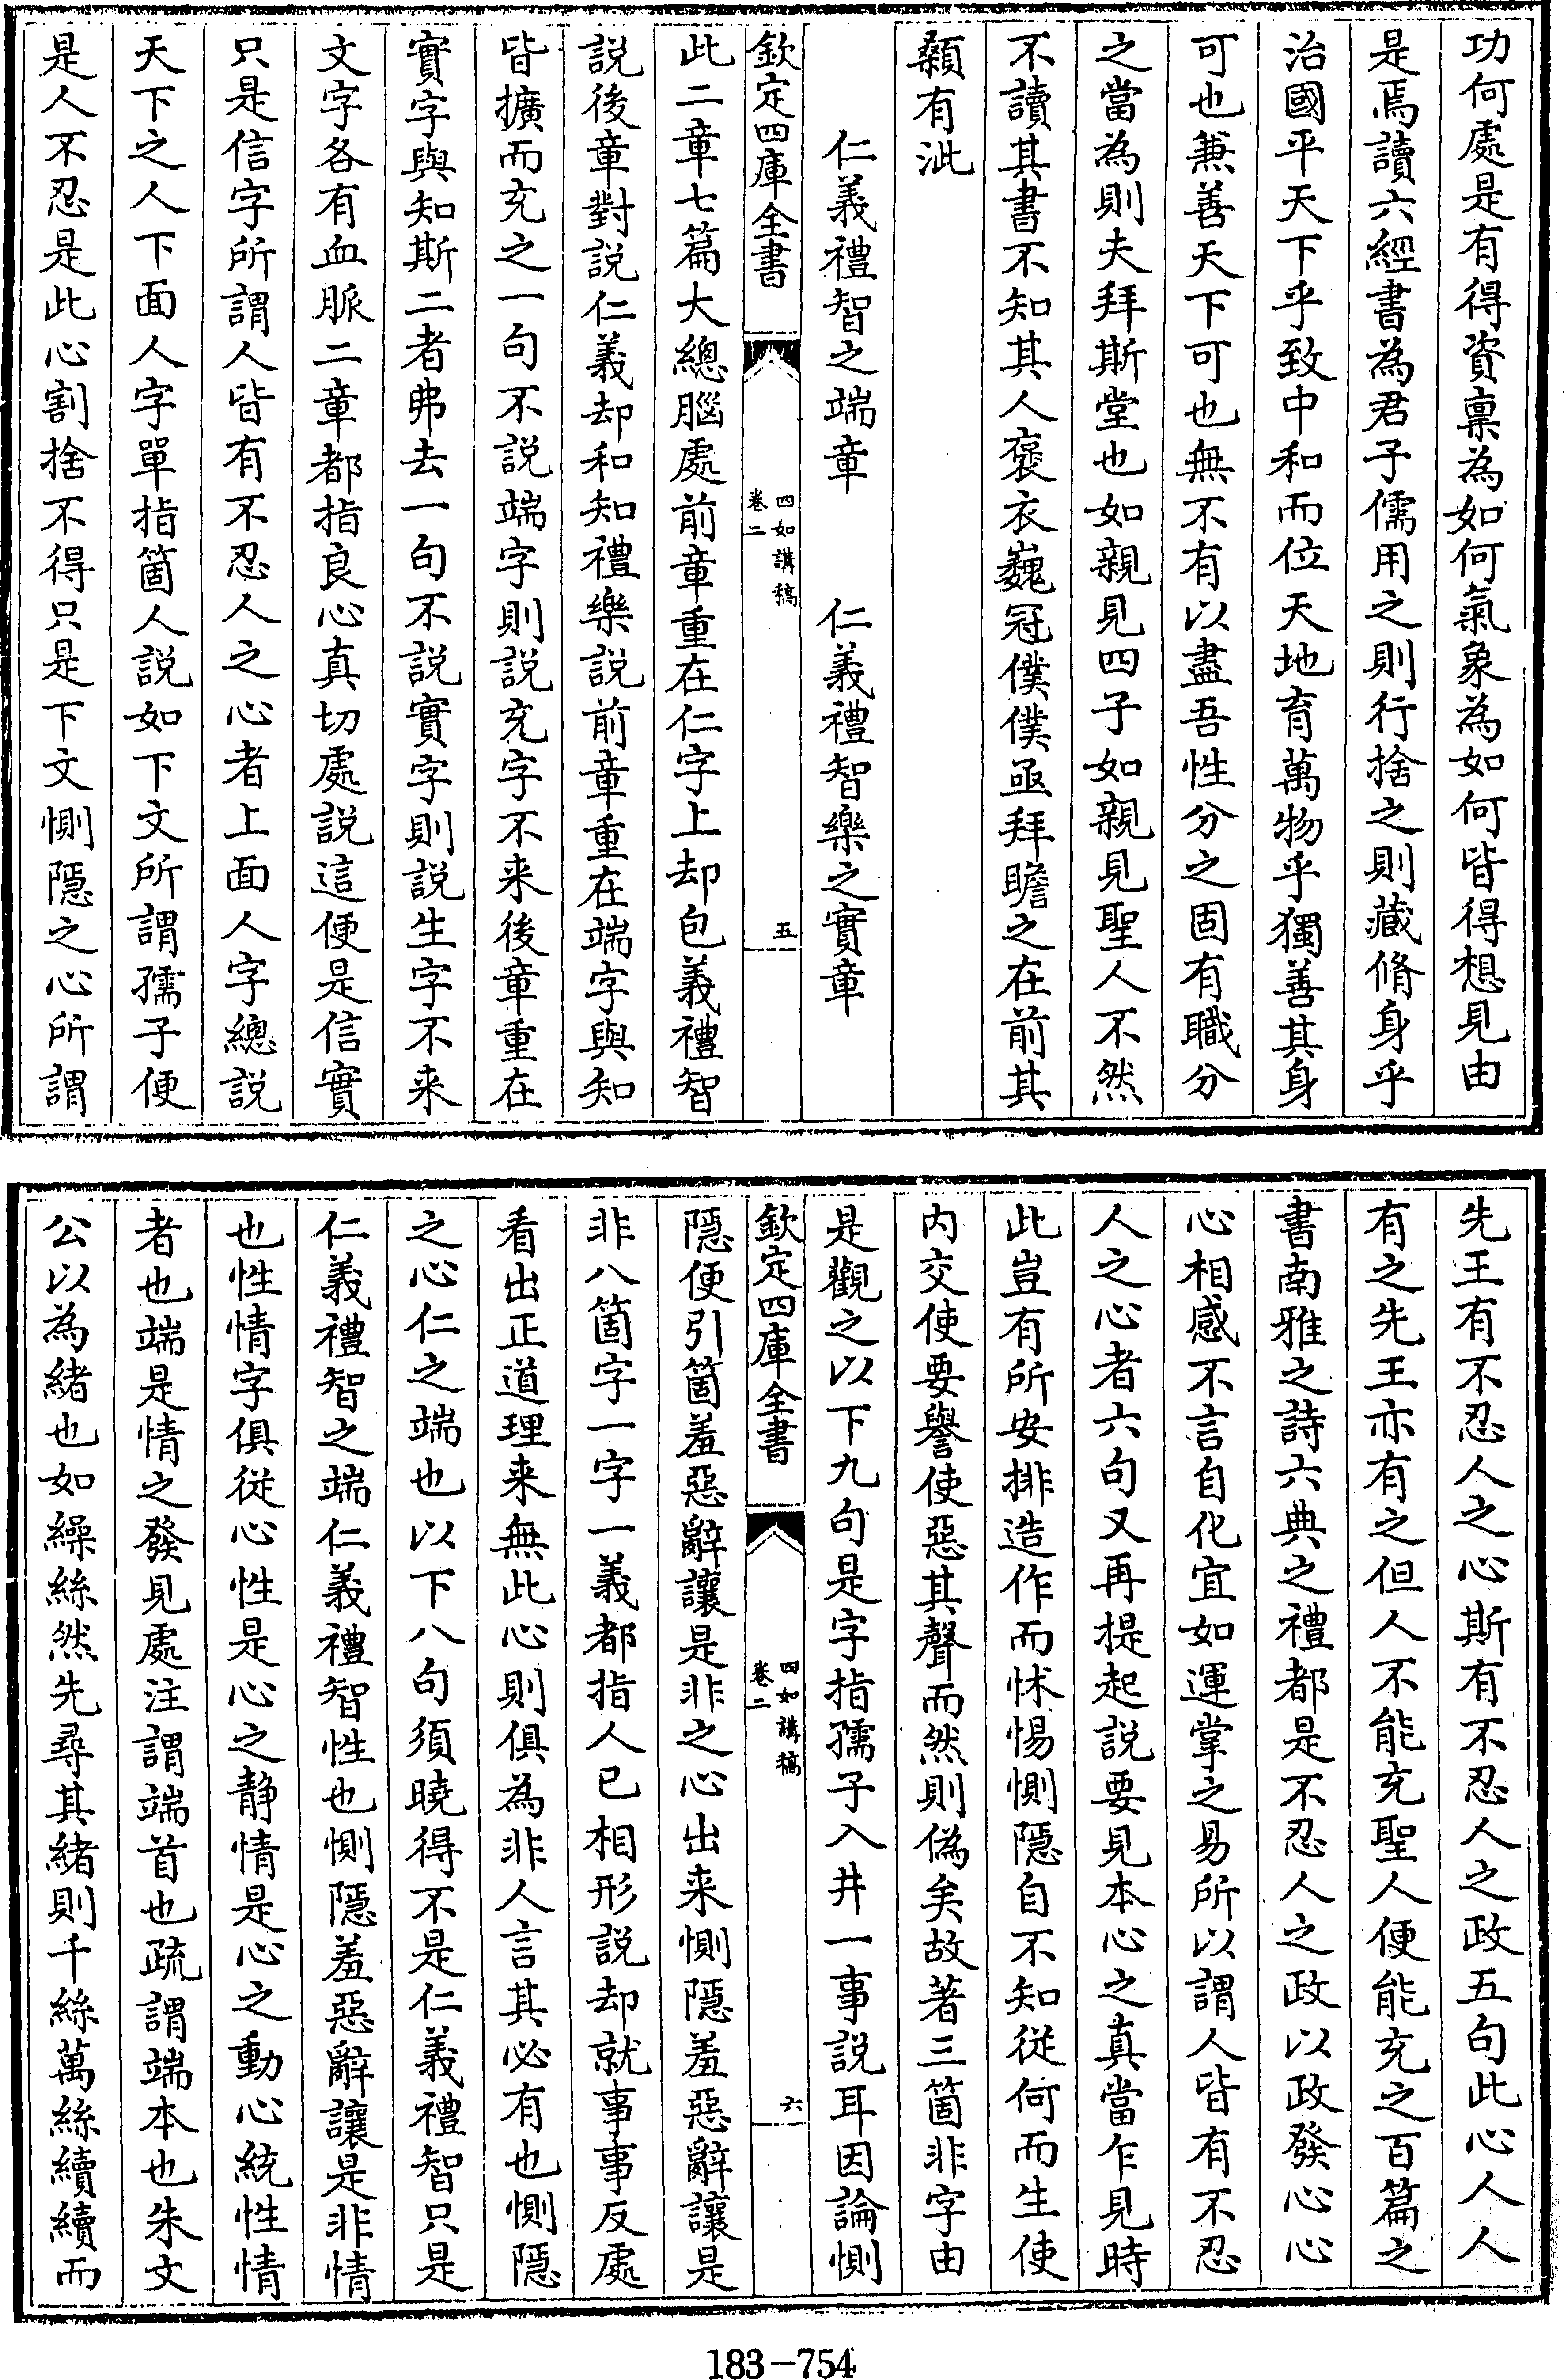 功何處是有得資稟為如何氣象為如何皆得想見由
是焉讀六經書為君子儒用之則行捨之則藏脩身乎
治國平天下乎致中和而位天地育萬物乎獨善其身
可也兼善天下可也無不有以盡吾性分之固有職分
之當為則夫拜斯堂也如親見四子如親見聖人不然
不讀其書不知其人褒衣巍冠僕僕亟拜瞻之在前其
顙有泚
仁義禮智之端章　仁義禮智樂之實章
欽定四庫全書　四如講稿卷二　五
此二章七篇大總腦處前章重在仁字上却包義禮智
説後章對説仁義却和知禮樂説前章重在端字與知
皆擴而充之一句不説端字則説充字不来後章重在
實字與知斯二者弗去一句不説實字則説生字不来
文字各有血脈二章都指良心真切處説這便是信實
只是信字所謂人皆有不忍人之心者上面人字總説
天下之人下面人字單指箇人説如下文所謂孺子便
是人不忍是此心割捨不得只是下文惻隱之心所謂
先王有不忍人之心斯有不忍人之政五句此心人人
有之先王亦有之但人不能充聖人便能充之百篇之
書南雅之詩六典之禮都是不忍人之政以政發心心
心相感不言自化宜如運掌之易所以謂人皆有不忍
人之心者六句又再提起説要見本心之真當乍見時
此豈有所安排造作而怵惕惻隱自不知從何而生使
内交使要譽使惡其聲而然則偽矣故著三箇非字由
是觀之以下九句是字指孺子入井一事説耳因論惻
欽定四庫全書　四如講稿卷二　六
隱便引箇羞惡辭讓是非之心出来惻隱羞惡辭讓是
非八箇字一字一義都指人已相形説却就事事反處
看出正道理来無此心則俱為非人言其必有也惻隱
之心仁之端也以下八句須曉得不是仁義禮智只是
仁義禮智之端仁義禮智性也惻隱羞惡辭讓是非情
也性情字俱從心性是心之静情是心之動心統性情
者也端是情之發見處注謂端首也疏謂端本也朱文
公以為緒也如繰絲然先尋其緒則千絲萬絲續續而
183-754